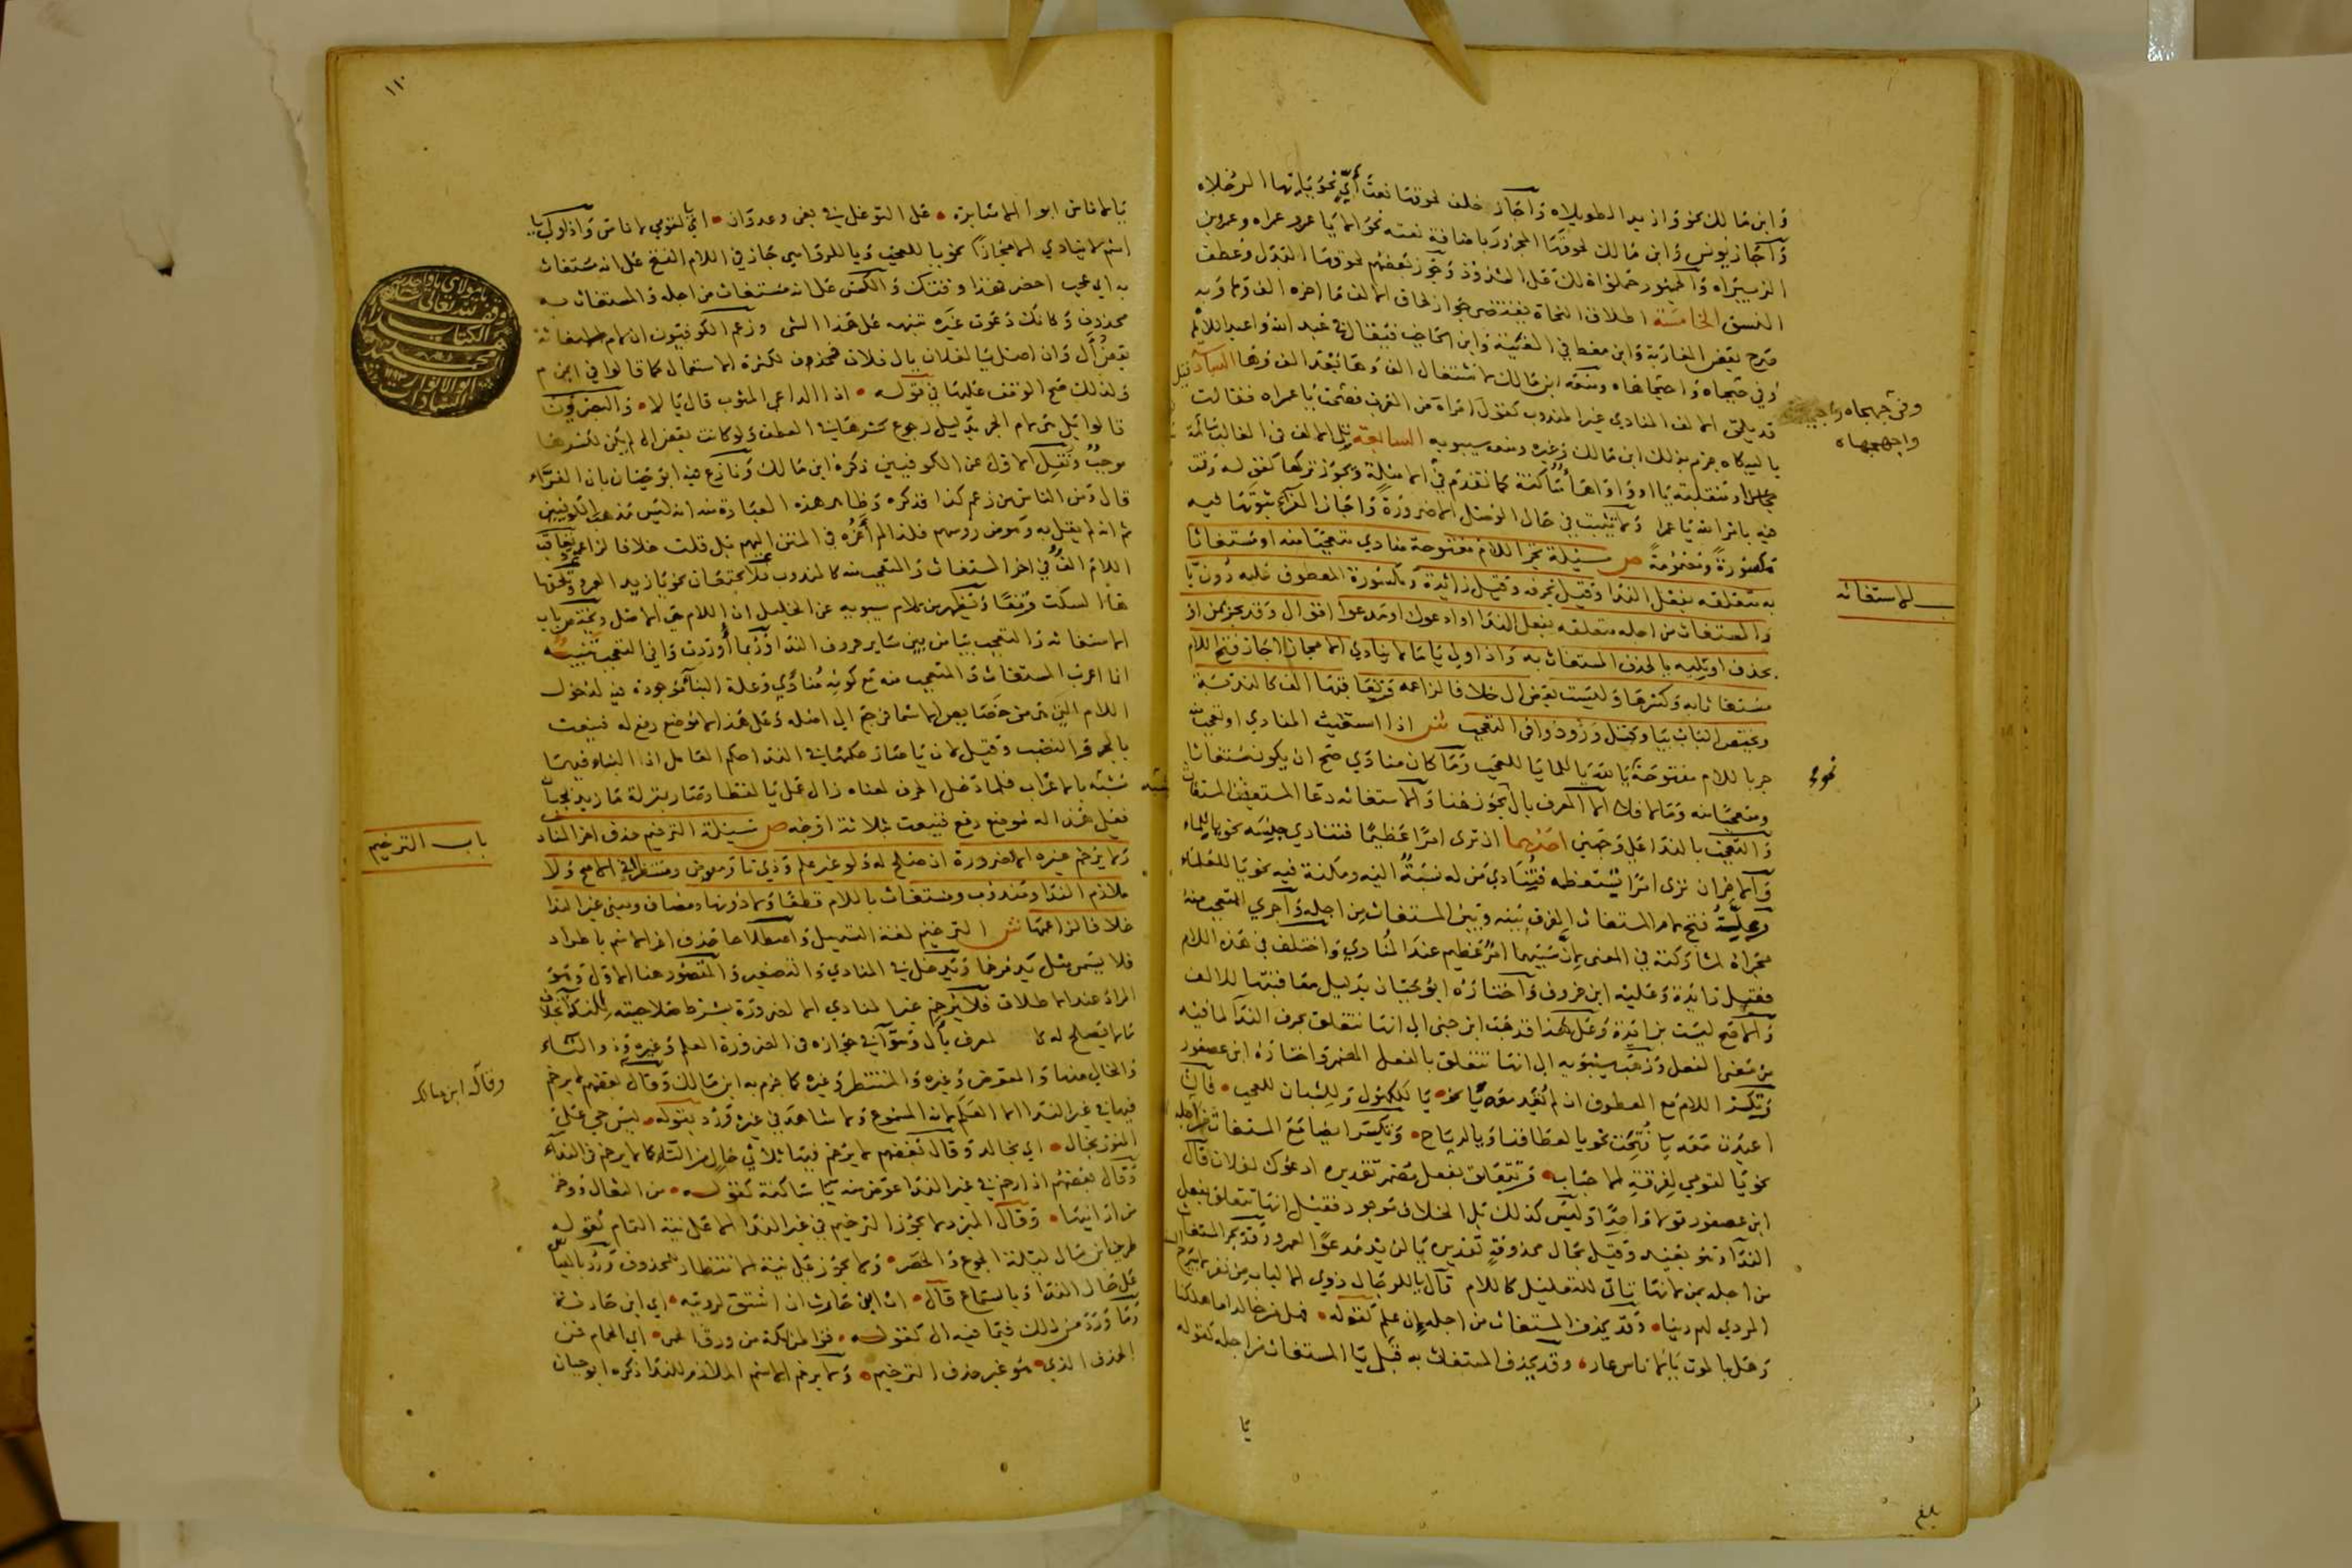 وابن مالك نحو وازيدا الطويلاه واجاز خلف لحوقها نعت أيّ نحو يا ايها الرجلاه
واجاز يونس وابن مالك لحوقها المجرور باضافة نعته نحو الا يا عمرو عمراه وعمرو بن
الزبيراه والجمهور حملوا ذلك على الشذوذ وجوز بعضهم لحوقها البدل وعطف
النسق الخامسة اطلاق النحاة يقتضي جواز لحاق الالف ما اخره الف وهاء وبه
صرح بعض المغاربة وابن معط في الفيته وابن الحاجب فيقال في عبد الله واعبد اللاهاه
وفي جهجاه واجهجاهاه ومنعه ابن مالك لاستثقال الف وهاء بعد الف وهاء السادسة
قد يلحق الالف المنادي غير المندوب كقول امراة من العرب فصحت يا عمراه فقالت
يا لبيكاه جزم بذلك ابن مالك وغيره ومنعه سيبويه السابعة يلي الالف في الغالب سالمة
ومنقلبة يا او واوا هاء ساكنة كما تقدم في الامثلة ويجوز تركها كقوله وقمت
فيه بامر الله يا عمرا ولا تثبت في حال الوصل الا ضرورة واجاز الفراء ثبوتها فيه
مكسورة ومضمومة ص مسئلة يجر اللام مفتوحة منادي متعجبا منه او مستغاثا
به متعلقه بفعل الندا وقيل بحرفه وقيل زائدة ومكسورة المعطوف عليه دون يا
والمستغاث من اجله متعلقه بفعل الندا او ادعوك او مدعوا اقوال وقد يجر بمن او
يحذف او يليه يا لحذف المستغاث به واذا ولي يا ما لا ينادي الا مجازا جاز فتح اللام
مستغاثا به وكسرها وليست بعض ال خلافا لزاعمه وتعاقبها الف كالندبة
ويختص الباب بيا وكتل ورود وا في التعجب ش اذا استغيث المنادي او تعجب منه
جر باللام مفتوحة يا لله يا للماء يا للعجب وما كان منادي صح ان يكون مستغاثا
ومتعجبا منه وما لا فلا الا المعرف بال يجوز هنا والاستغاثه دعا المستغيث المستغاث
والتعجب بالندا على وجهين احدهما ان ترى امرا عظيما فتنادي جنسه نحو يا للماء
والاخر ان ترى امرا تستعظمه فتنادي من له نسبة اليه ومكنة فيه نحو يا للعلماء
وعلة فتح لام المستغاث الفرق بينه وبين المستغاث من اجله واجري المتعجب منه
مجراه لمشاركته في المعنى لان سببهما امر عظيم عند المنادي واختلف في هذه اللام
فقيل زائدة وعليه ابن خروف واختاره ابو حيان بدليل معاقبتها للالف
والاصح ليست بزائدة وعلى هذا فذهب ابن جنى الى انها تتعلق بحرف الندا لما فيه
من معنى الفعل وذهب سيبويه الى انها تتعلق بالفعل المضمر واختاره ابن عصفور
وتكسر اللام مع المعطوف ان لم تعد معه يا نحو يا للكهول وللشبان للعجب فان
اعيدت معه يا فتحت نحو يا لعطافنا ويا لرياح وتكسر ايضا مع المستغاث من اجله
نحو يا لقومي لفرقة الاحباب وتتعلق بفعل مضمر تقديره ادعوك لفلان قال
ابن عصفور قولا واحدا وليس كذلك بل الخلاف موجود فقيل انها تتعلق بفعل
الندا وهو بعيد وقيل بحال محذوفة تقديره يا لزيد مدعوا لعمرو وقد يجر المستغاث
من اجله بمن لانها تاتي للتعليل كاللام قال يا للرجال ذوي الالباب من نفر لا يبرح
المردي لهم دينا وقد يحذف المستغاث من اجله ان علم كقوله فهل من خالد اما هلكنا
وهل بالموت يا للناس عار وقد يحذف المستغاث به قبل يا المستغاث من اجله كقوله
يا
للاستغاثه
نحو
بلغ
١١٠
يا لاناس ابوا الا مثابرة على التوغل في بغي وعدوان اي يا لقومي لاناس واذا ولي يا
اسم لا ينادي الا مجازا نحو يا للعجب ويا للدواهي جاز في اللام الفتح على انه مستغاث
به اي يا عجب احضر فهذا وقتك والكسر على انه مستغاث من اجله والمستغاث به
محذوف وكانك دعوت غيره تنبهه على هذا الشى وزعم الكوفيون ان لام الاستغاثة
بعض آل وان اصل يا لفلان يا ال فلان فحذف لكثرة الاستعمال كما قالوا في ايمن م
ولذلك صح الوقف عليها في قوله اذا الداعي المثوب قال يا لا والبصريون
قالوا بل هي لام الجر بدليل رجوع كسرها في العطف ولو كانت بعض ال لم يكن لكسرها
موجب ونقل الاول عن الكوفيين ذكره ابن مالك ونازع فيه ابو حيان بان الفراء
قال ومن الناس من زعم كذا فذكره وظاهر هذه العبارة منه انه ليس مذهب الكوفيين
ثم انه لم يقل به وهو من رؤسهم فلذا لم أعزه في المتن اليهم بل قلت خلافا لزاعمه وتعاقب
اللام الف في اخر المستغاث والمتعجب منه كالمندوب فلا يجتمعان نحو يا زيدا لعمرو وتلحقها
هاء السكت وقفا وتظهر من كلام سيبويه عن الخليل ان اللام هي الاصل ويختص باب
الاستغاثه والتعجب بيا من بين ساير حروف الندا وربما أوردت وا في التعجب تنبيه
انما اعرب المستغاث والمتعجب منه مع كونه منادي وعلة البناء موجودة فيه لدخول
اللام التي هي من خصايص الاسما فرجح الى اصله وعلى هذا لا موضع رفع له فينعت
بالجر والنصب وقيل لان يا عملت عملها في الندا حكم العامل اذ البناء فيها
شبيه بالاعراب فلما دخل الحرف لمعناه زال عمل يا لفظا وصار بمنزلة ما زيد بجبان
فعلى هذا له موضع رفع فينعت بثلاثة اوجه ص مسئلة الترخيم حذف اخر المناد
ولا يرخم غيره الا ضرورة ان صلح له ولو غير علم وذي تا ومعوض ومنتظر في الاصح ولا
ملازم الندا ومندوب ومستغاث باللام قطعا ولا دونها ومضاف ومبني غير الندا
خلافا لزاعمها ش الترخيم لغة التسهيل واصطلاحا حذف اخر الاسم باطراد
فلا يسمى مثل يد مرخما ويدخل في المنادي والتصغير والمقصود هنا الاول وهو
المراد عند الاطلاق فلا يرخم غير المنادي الا لضرورة بشرط صلاحيته للندا بخلاف
ما لا يصلح له كالمعرف بأل وسوا في جوازه في الضرورة العلم وغيره وذو التاء
والخالي منها والمعوض وغيره والمنتظر وغيره كما جزم به ابن مالك وقال بعضهم لم يرخم
فيها في غير الندا الا العلم لانه المسموع ولا شاهد في غيره ورد بقوله ليس حي على
المنون بخال اي بخالد وقال بعضهم لا يرخم فيها ثلاثي خال من التاء كما لا يرخم في الندآء
وقال بعضهم اذا رخم في غير الندا عوض منه يا ساكنة كقوله من الثعالي ووخز
من ارانيها وقال المبرد لا يجوز الترخيم في غير الندا الا على نية التمام كقوله
طريف ابن مال ليلة الجوع والخصر ولا يجوز على نية الانتظار للمحذوف ورد بالقياس
على حال الندا وبالسماع قال ان ابن حارث ان اشتق لرؤيته اي ابن حارثة
وما ورد من ذلك فيما فيه ال كقوله قواطنا مكة من ورق الحمى اي الحمام فمن
الحذف الذي هو غير حذف الترخيم ولا يرخم الاسم الملازم للندا ذكره ابو حيان
باب الترخيم
وقاله ابن مالك